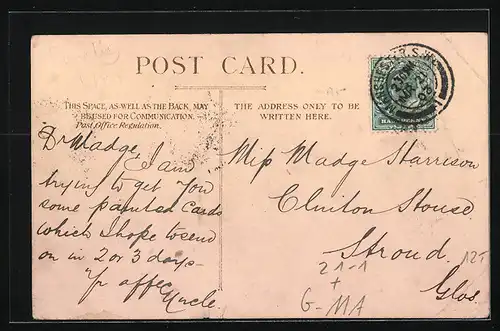 POST CARD.
THIS SPACE, AS WELL AS THE BACK, MAY
BE USED FOR COMMUNICATION.
Post Office Regulation.
THE ADDRESS ONLY TO BE
WRITTEN HERE.
Dr Madge, I am
trying to get you
some painted Cards
which I hope to send
on in 2 or 3 days –
Yr affec
Uncle.
Miss Madge Harrison
Clinton House
Stroud.
Glos
12-
21-1
+
G-MA